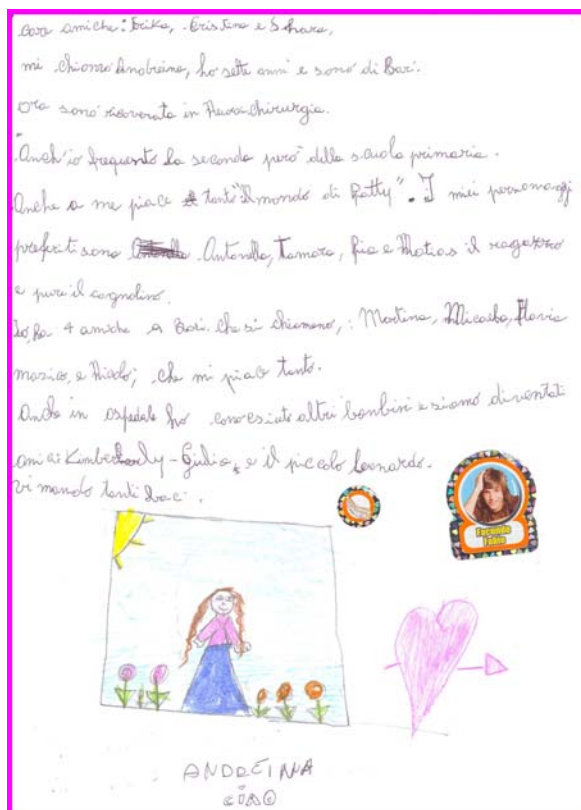 care amiche: Erika, Cristina e Sahara,
mi chiamo Andreina, ho sette anni e sono di Bari.
Ora sono ricoverata in Neurochirurgia.
Anch'io frequento la seconda però della scuola primaria.
Anche a me piace tanto "Il mondo di Patty". I miei personaggi
preferiti sono Antonella, Tamara, Pia e Matias il ragazzo
e pure il cagnolino.
Io, ho 4 amiche a Bari. che si chiamano,: Martina, Micaela, Flavia
e Nicolò, che mi piace tanto.
Anche in ospedale ho conosciuto altri bambini e siamo diventati
amici Kimberly-Giulia, e il piccolo Leonardo.
vi mando tanti baci.
Facundo
Fabio
ANDREINA
CIAO